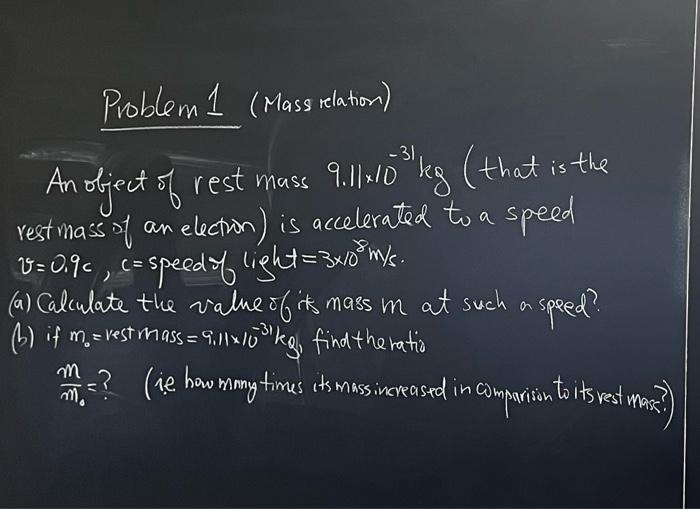 Problem 1 (Mass relation)
An object of rest mass 9.11×10⁻³¹ kg (that is the
rest mass of an electron) is accelerated to a speed
v=0.9c, c=speed of light=3×10⁸ m/s.
(a) Calculate the value of its mass m at such a speed?
(b) if m₀=rest mass=9.11×10⁻³¹ kg, find the ratio
m/m₀=? (ie how many times its mass increased in comparison to its rest mass?)